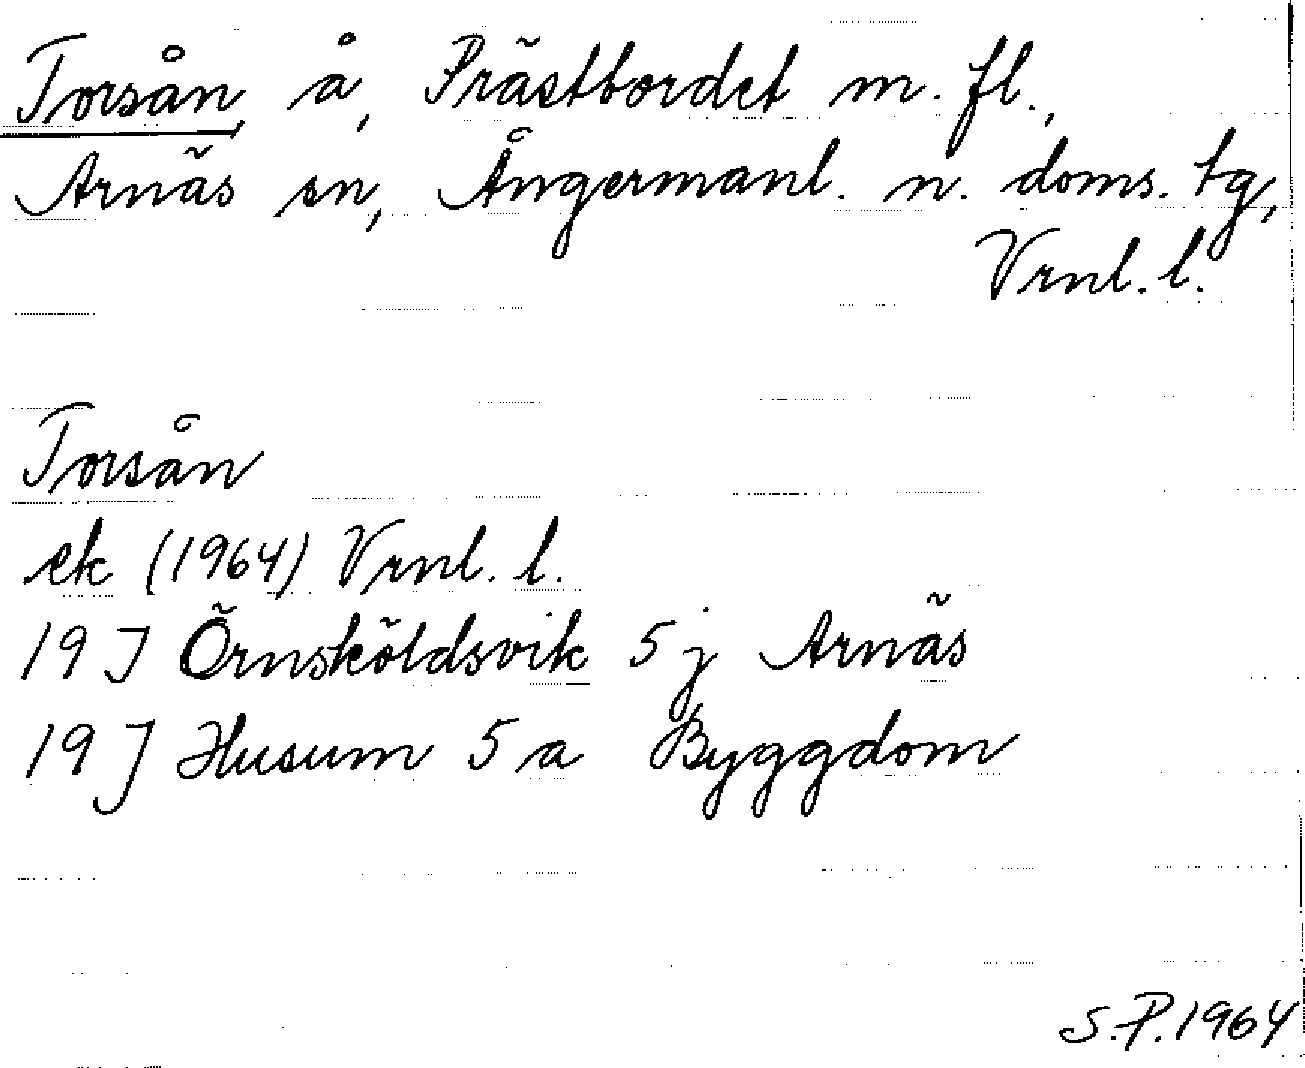 Torsån, å, Prästbordet m. fl.,
Arnäs sn, Ångermanl. n. doms. tg,
Vrnl. l.
Torsån
ek (1964) Vrnl. l.
19 I Örnsköldsvik 5 j Arnäs
19 J Husum 5 a Byggdom
S.P. 1964